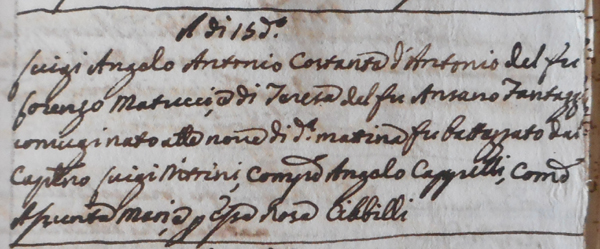 A di 15 d.o
Luigi Angelo Antonio Costante d'Antonio del fu
Lorenzo Matucci, e di Teresa del fu Ansano Fantagg
coniugi nato alle nove di d.a mattina fu battezzato dal
Luigi Petrini, Comp.e Angelo Cappelli, Com.e
Assunta Maria p Rosa Cibbilli